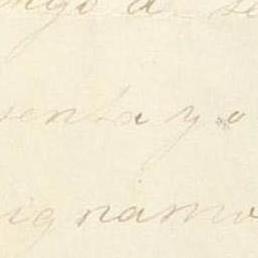 ngo a se
senta y o
ignamo